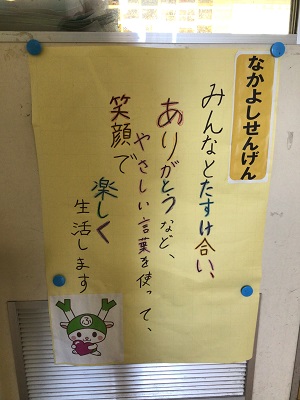 なかよしせんげん
みんなとたすけ合い、
ありがとうなど、
やさしい言葉を使って、
笑顔で
楽しく
生活します